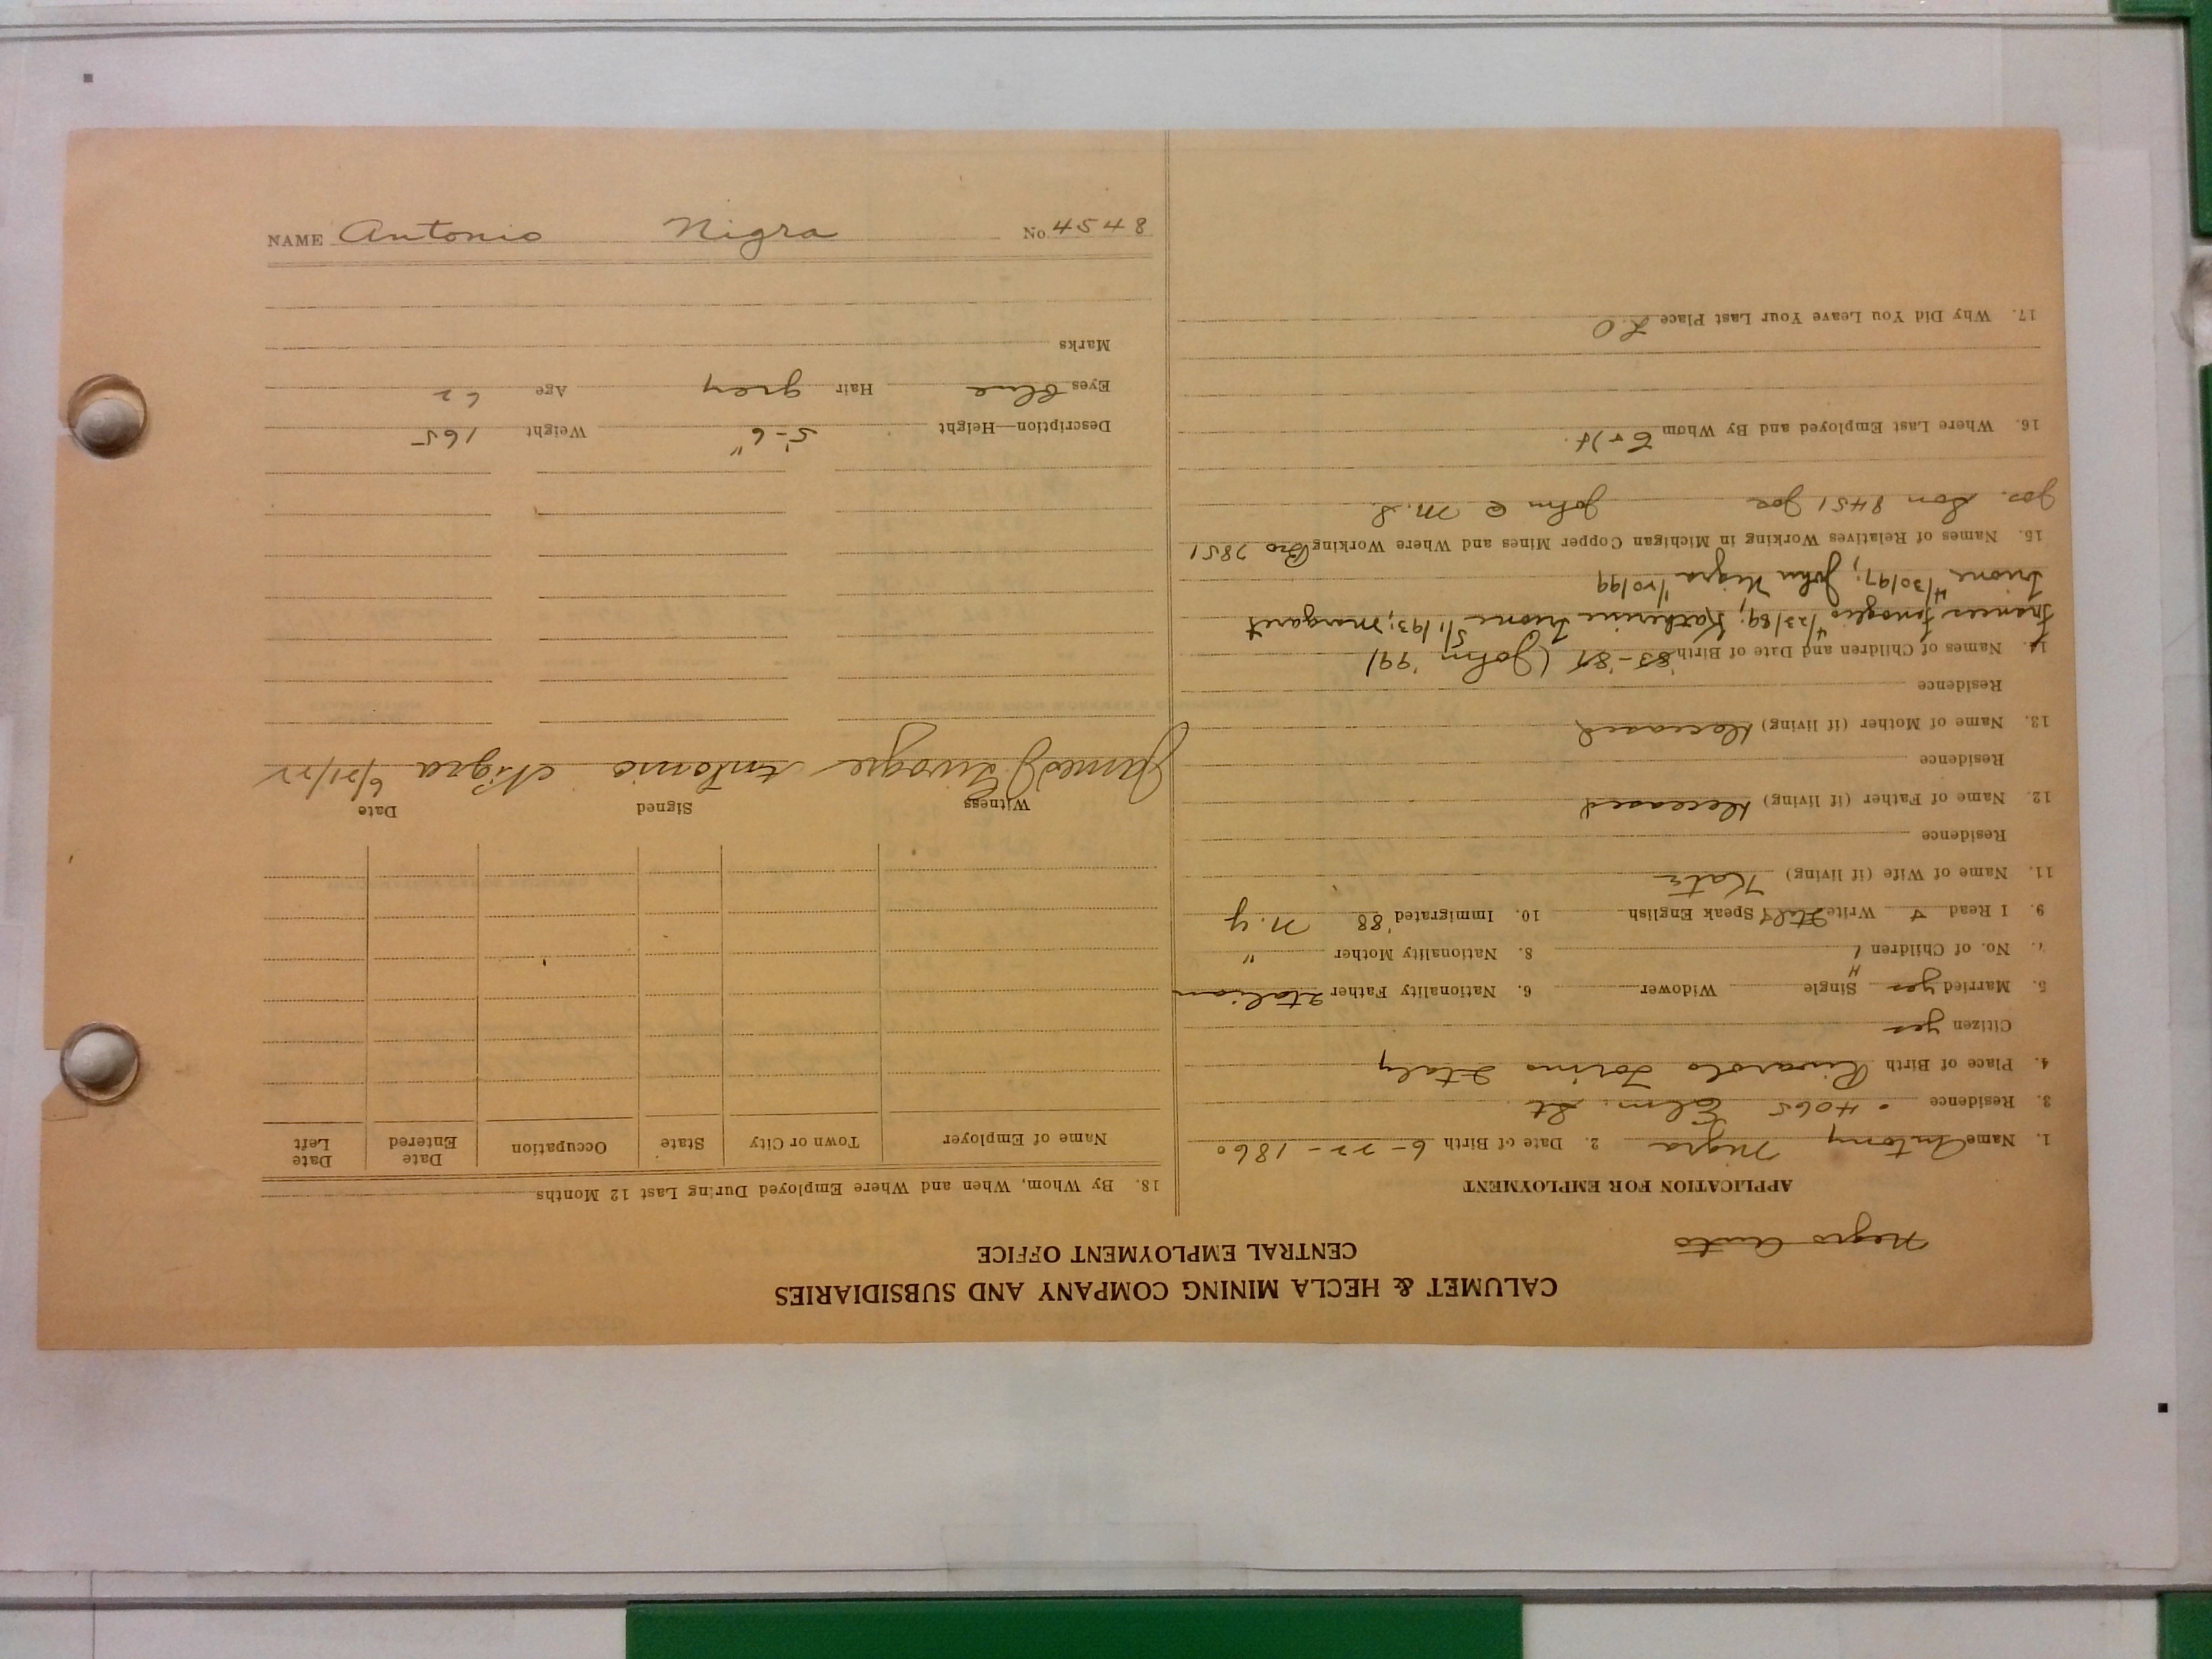 CALUMET & HECLA MINING COMPANY AND SUBSIDIARIES
CENTRAL EMPLOYMENT OFFICE
Negro Anto
APPLICATION FOR EMPLOYMENT
1. Name Antony Nigra 2. Date of Birth 6-22-1860
3. Residence 4065 Elm. St
4. Place of Birth Rivarolo Torino Italy
Citizen yes
5. Married yes Single Widower 6. Nationality Father Italian
7. No. of Children 1 8. Nationality Mother "
4
9. I Read Write Ital Speak English 10. Immigrated '88 N.Y
11. Name of Wife (if living) Kate
Residence
12. Name of Father (if living) deceased
Residence
13. Name of Mother (if living) deceased
Residence
14. Names of Children and Date of Birth (John '99)
Frances 4/23/89; Katherine Trione 5/1/93; Margaret
Trione 4/30/97; John Nigra
15. Names of Relatives Working in Michigan Copper Mines and Where Working Bro 7851
Jos. Son 8451 Joe John
16. Where Last Employed and By Whom
17. Why Did You Leave Your Last Place L.O
18. By Whom, When and Where Employed During Last 12 Months
Name of Employer Town or City State Occupation Date Entered Date Left
Witness Signed Date
James Antonio Nigra 6/21/22
Description—Height 5'-6" Weight 165
Eyes Blue Hair grey Age 62
Marks
NAME Antonio Nigra No. 4548